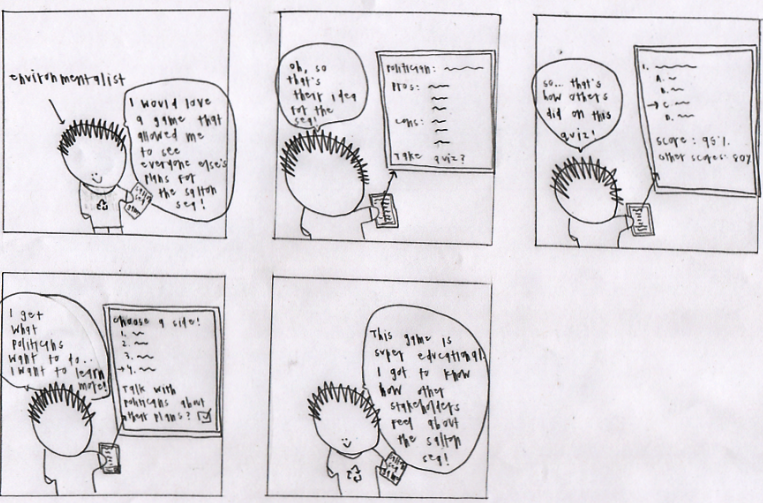 environmentalist
I would love
a game that
allowed me
to see
everyone else's
plans for
the salton
sea!
oh, so
that's
their idea
for the
sea!
politician:
pros:
cons:
Take quiz?
so... that's
how others
did on this
quiz!
1.
A.
B.
C.
D.
score: 95%
other scores: 80%
I get
what
politicians
want to do..
I want to learn
more!
choose a side!
1.
2.
3.
4.
Talk with
politicians about
other plans?
This game is
super educational.
I got to know
how other
stakeholders
feel about
the salton
sea!